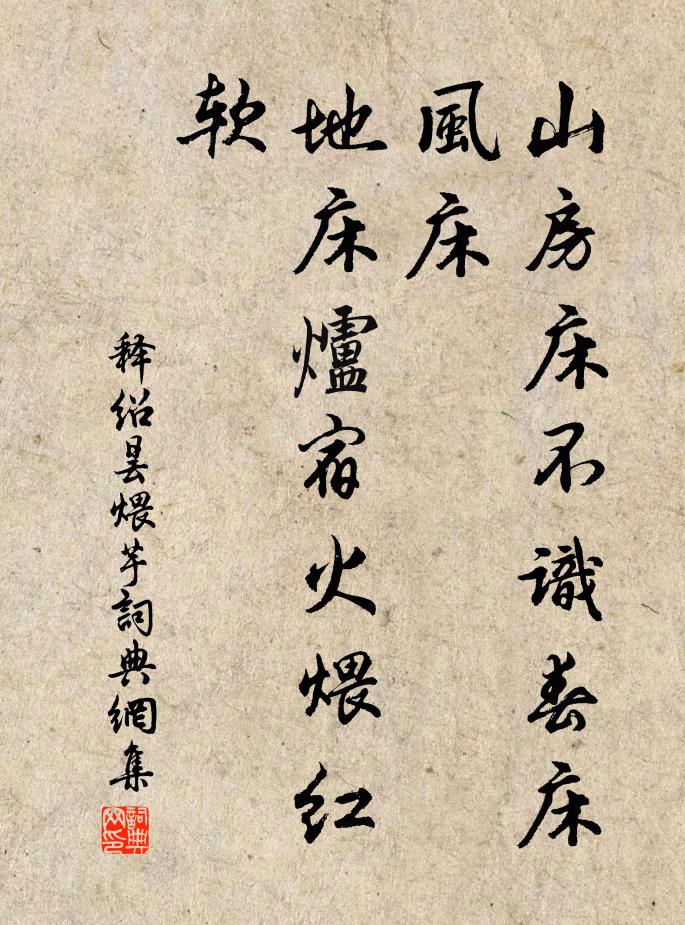 山房床不識春床
風床
地床爐宿火煨紅
軟
释紹曇煨芋詞典網集
詞典网印